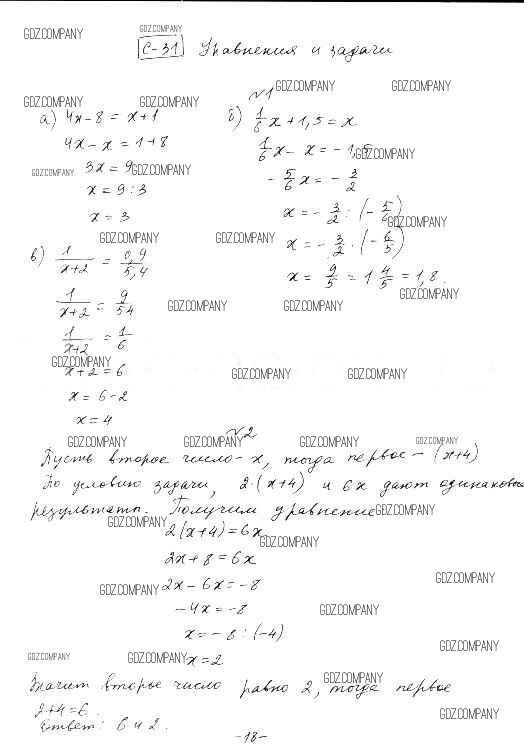 GDZ.COMPANY GDZ.COMPANY
С-31 Уравнения и задачи
№1 GDZ.COMPANY GDZ.COMPANY
GDZ.COMPANY GDZ.COMPANY
а) 4x-8 = x+1
4x - x = 1+8
GDZ.COMPANY 3x = 9 GDZ.COMPANY
x = 9:3
x = 3
б) 1/6 x + 1,5 = x
1/6 x - x = - 1,5 GDZ.COMPANY
- 5/6 x = - 3/2
x = - 3/2 : (- 5/6)
GDZ.COMPANY
x = - 3/2 · (- 6/5)
x = 9/5 = 1 4/5 = 1,8.
GDZ.COMPANY
GDZ.COMPANY GDZ.COMPANY
в) 1/(x+2) = 0,9/5,4
1/(x+2) = 9/54 GDZ.COMPANY GDZ.COMPANY
1/(x+2) = 1/6
GDZ.COMPANY
x+2 = 6 GDZ.COMPANY GDZ.COMPANY
x = 6-2
x = 4
№2
GDZ.COMPANY GDZ.COMPANY GDZ.COMPANY GDZ.COMPANY
Пусть второе число - x, тогда первое - (x+4)
По условию задачи, 2·(x+4) и 6x дают одинаковые
результаты. Получим уравнение GDZ.COMPANY
GDZ.COMPANY
2(x+4) = 6x
GDZ.COMPANY
2x+8 = 6x
GDZ.COMPANY
GDZ.COMPANY 2x-6x = -8
-4x = -8 GDZ.COMPANY
x = -8 : (-4)
GDZ.COMPANY
GDZ.COMPANY GDZ.COMPANY x = 2
GDZ.COMPANY
Значит второе число равно 2, тогда первое
2+4=6.
GDZ.COMPANY
Ответ: 6 и 2.
-18-